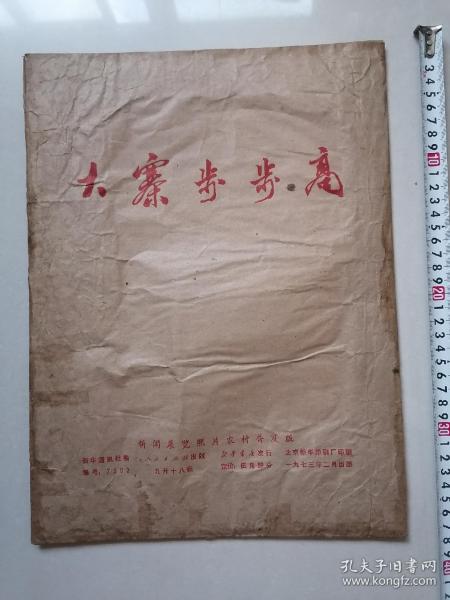 大寨步步高
新闻展览照片农村普及版
新华通讯社稿 人民 出版 新华书店发行 北京新华印刷厂印刷
编号:7302 九开十八张 定价: 一九七三年二月出版
3 4 5 6 7 8 9 10 1 2 3 4 5 6 7 8 9 20 1 2 3 4 5 6 7 8 9 30 1 2 3 4 5 6 7 8 9 40
孔夫子旧书网
www.kongfz.com